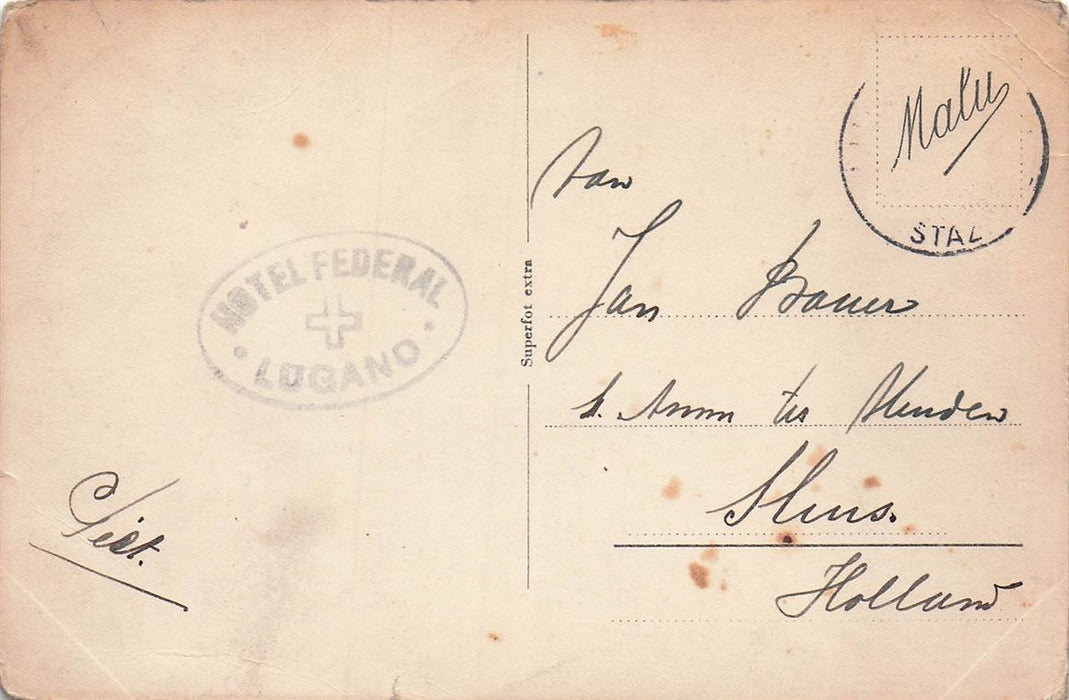 HOTEL FEDERAL
LUGANO
Piet.
Superfot extra
Malu
STAL
van
Jan Brouwer
St. Anna ter Muiden
Sluis.
Holland